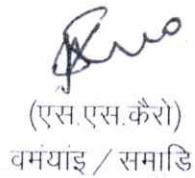 (एस.एस.कैरो)
वमंयांइ / समाडि